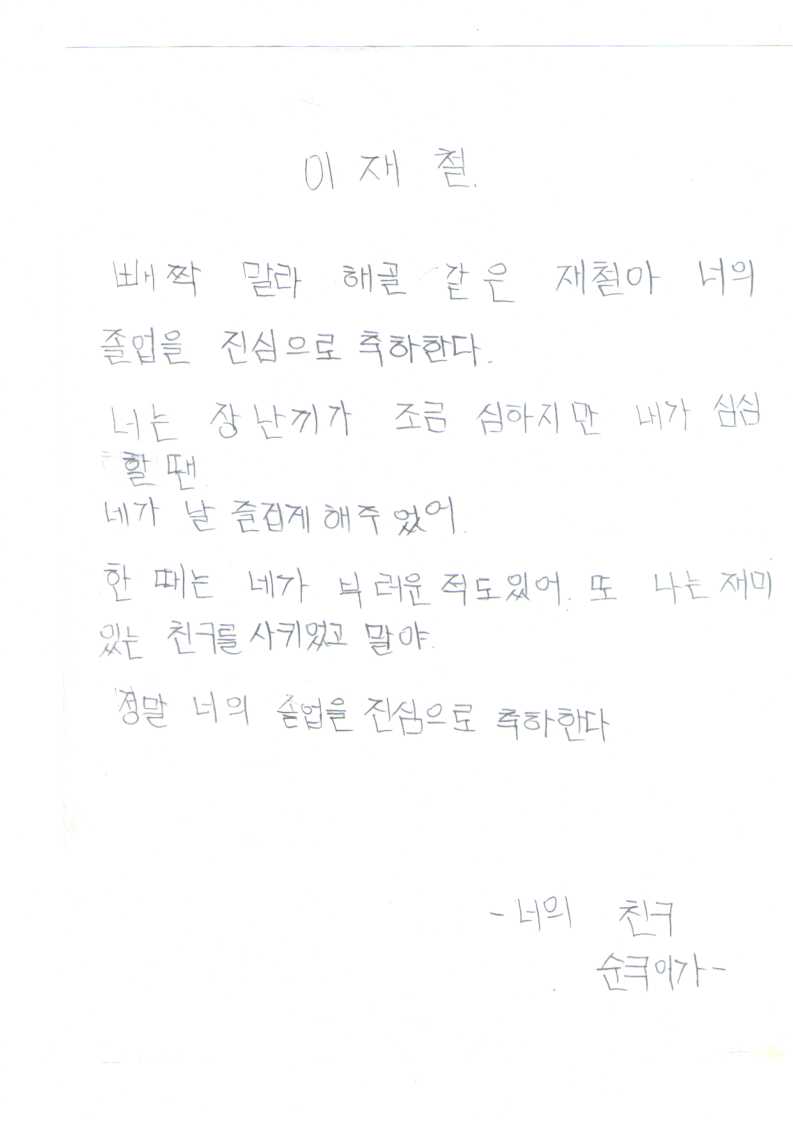 이재철.
빼짝 말라 해골 같은 재철아 너의
졸업을 진심으로 축하한다.
너는 장난끼가 조금 심하지만 내가 심심
할 땐
네가 날 즐겁게 해주었어.
한 때는 네가 부러운 적도있어. 또 나는 재미
있는 친구를 사키었고 말야.
정말 너의 졸업을 진심으로 축하한다
- 너의 친구
이가 -